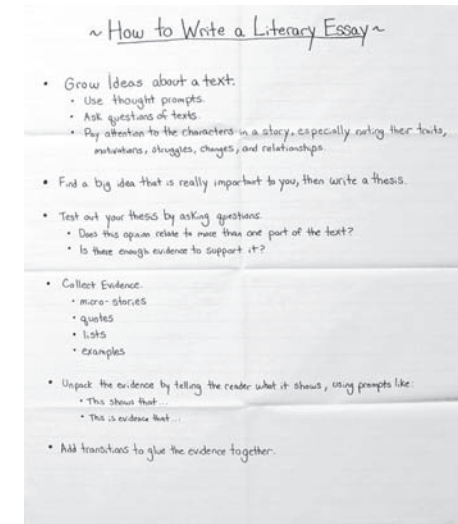 ~ How to Write a Literary Essay ~
• Grow Ideas about a text:
• Use thought prompts.
• Ask questions of texts.
• Pay attention to the characters in a story, especially noting their traits,
motivations, struggles, changes, and relationships.
• Find a big idea that is really important to you, then write a thesis.
• Test out your thesis by asking questions.
• Does this opinion relate to more than one part of the text?
• Is there enough evidence to support it?
• Collect Evidence.
• micro-stories
• quotes
• lists
• examples
• Unpack the evidence by telling the reader what it shows, using prompts like:
• This shows that...
• This is evidence that...
• Add transitions to glue the evidence together.